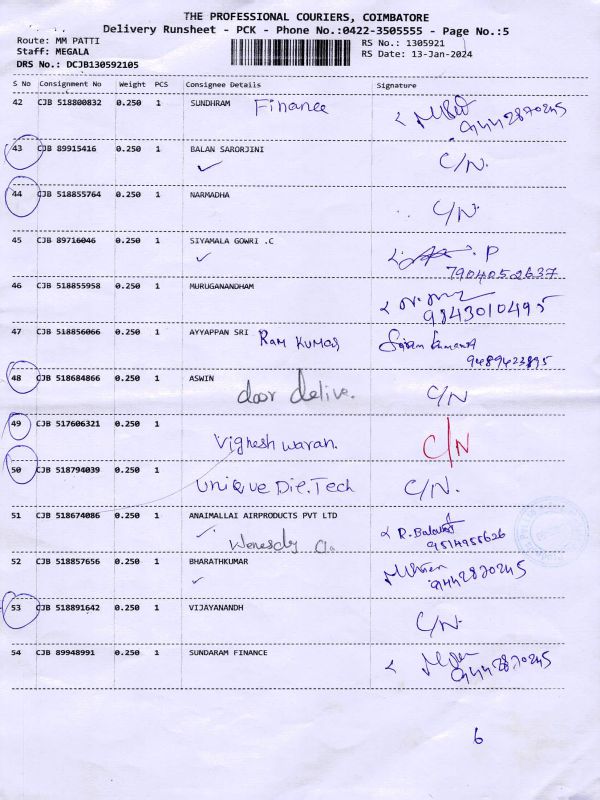 THE PROFESSIONAL COURIERS, COIMBATORE
Delivery Runsheet - PCK - Phone No.:0422-3505555 - Page No.:5
Route: MM PATTI
Staff: MEGALA
DRS No.: DCJB130592105
RS No.: 1305921
RS Date: 13-Jan-2024
S No Consignment No Weight PCS Consignee Details Signature
42 CJB 518800832 0.250 1 SUNDHRAM Finance
9442870245
43 CJB 89915416 0.250 1 BALAN SARORJINI C/N.
44 CJB 518855764 0.250 1 NARMADHA C/N.
45 CJB 89716046 0.250 1 SIYAMALA GOWRI .C P
7904052637
46 CJB 518855958 0.250 1 MURUGANANDHAM
9843010495
47 CJB 518856066 0.250 1 AYYAPPAN SRI Ram Kumar
9489423895
48 CJB 518684866 0.250 1 ASWIN C/N
door delive.
49 CJB 517606321 0.250 1
Vighesh waran. C/N
50 CJB 518794039 0.250 1
Unique Die.Tech C/N.
51 CJB 518674086 0.250 1 ANAIMALLAI AIRPRODUCTS PVT LTD
R. 9514955626
52 CJB 518857656 0.250 1 BHARATHKUMAR
9442870245
53 CJB 518891642 0.250 1 VIJAYANANDH C/N.
54 CJB 89948991 0.250 1 SUNDARAM FINANCE
9442870245
6